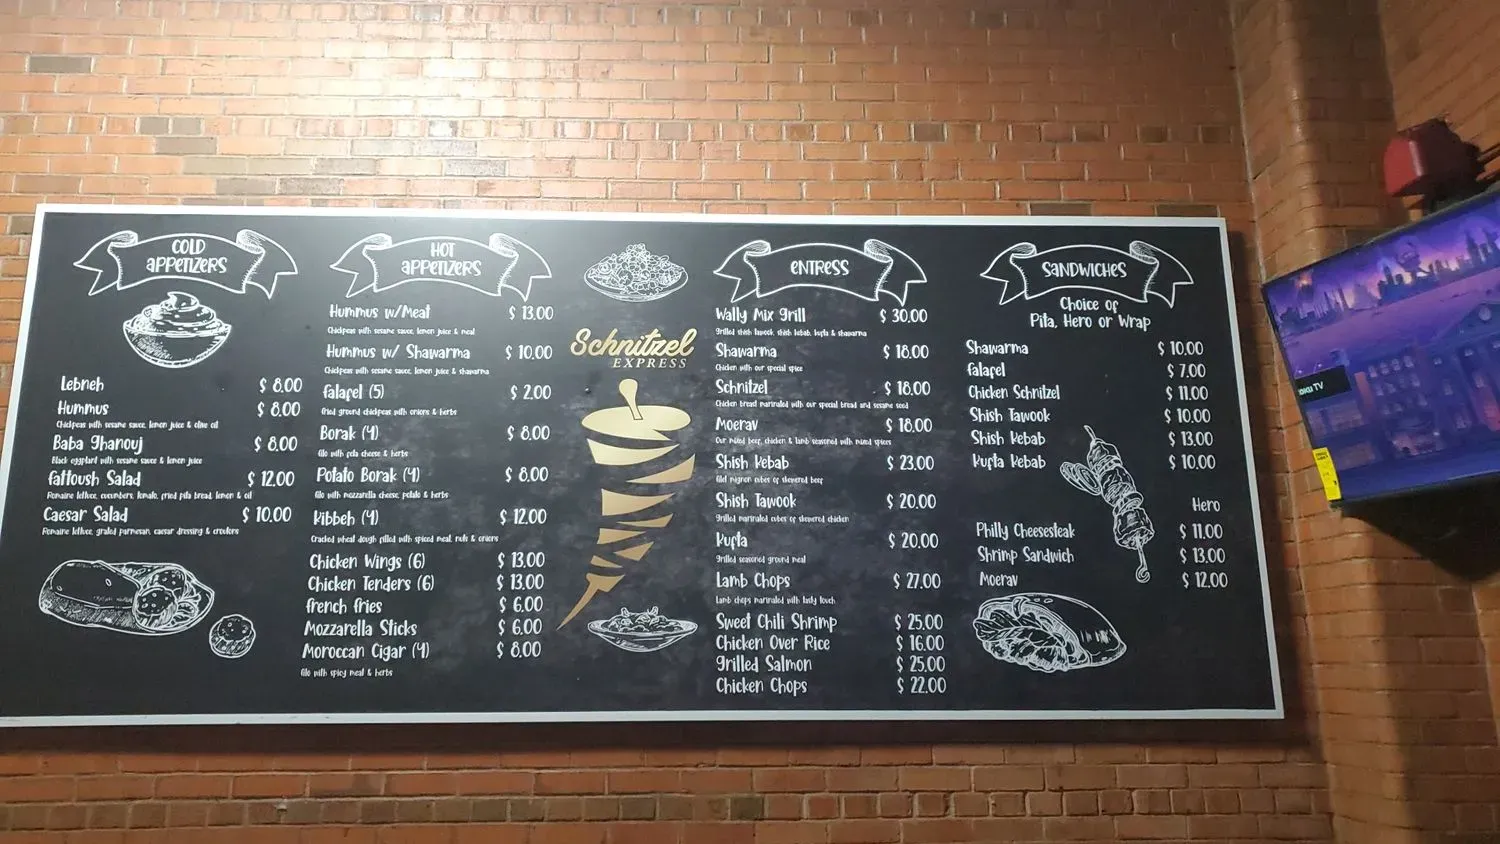 COLD
APPETIZERS
Lebneh $ 8.00
Hummus $ 8.00
Chickpeas with sesame sauce, lemon juice & olive oil
Baba Ghanouj $ 8.00
Black eggplant with sesame sauce & lemon juice
Fattoush Salad $ 12.00
Romaine lettuce, cucumbers, tomato, fried pita bread, lemon & oil
Caesar Salad $ 10.00
Romaine lettuce, grated parmesan, caesar dressing & croutons
HOT
APPETIZERS
Hummus w/Meat $ 13.00
Chickpeas with sesame sauce, lemon juice & meat
Hummus w/ Shawarma $ 10.00
Chickpeas with sesame sauce, lemon juice & shawarma
Falafel (5) $ 2.00
Fried ground chickpeas with onions & herbs
Borak (4) $ 8.00
filo with feta cheese & herbs
Potato Borak (4) $ 8.00
filo with mozzarella cheese, potato & herbs
Kibbeh (4) $ 12.00
Cracked wheat dough filled with spiced meat, nuts & onions
Chicken Wings (6) $ 13.00
Chicken Tenders (6) $ 13.00
French Fries $ 6.00
Mozzarella Sticks $ 6.00
Moroccan Cigar (4) $ 8.00
filo with spicy meat & herbs
Schnitzel
EXPRESS
ENTRESS
Wally Mix Grill $ 30.00
Grilled shish tawook, shish kebab, kufta & shawarma
Shawarma $ 18.00
Chicken with our special spice
Schnitzel $ 18.00
Chicken breast marinated with our special bread and sesame seed
Moerav $ 18.00
Our mixed beef, chicken & lamb seasoned with mixed spices
Shish Kebab $ 23.00
filet mignon cubes of skewered beef
Shish Tawook $ 20.00
Grilled marinated cubes of skewered chicken
Kufta $ 20.00
Grilled seasoned ground meat
Lamb Chops $ 27.00
Lamb chops marinated with tasty touch
Sweet Chili Shrimp $ 25.00
Chicken Over Rice $ 16.00
Grilled Salmon $ 25.00
Chicken Chops $ 22.00
SANDWICHES
Choice of
Pita, Hero or Wrap
Shawarma $ 10.00
Falafel $ 7.00
Chicken Schnitzel $ 11.00
Shish Tawook $ 10.00
Shish Kebab $ 13.00
Kufta Kebab $ 10.00
Hero
Philly Cheesesteak $ 11.00
Shrimp Sandwich $ 13.00
Moerav $ 12.00
Roku TV